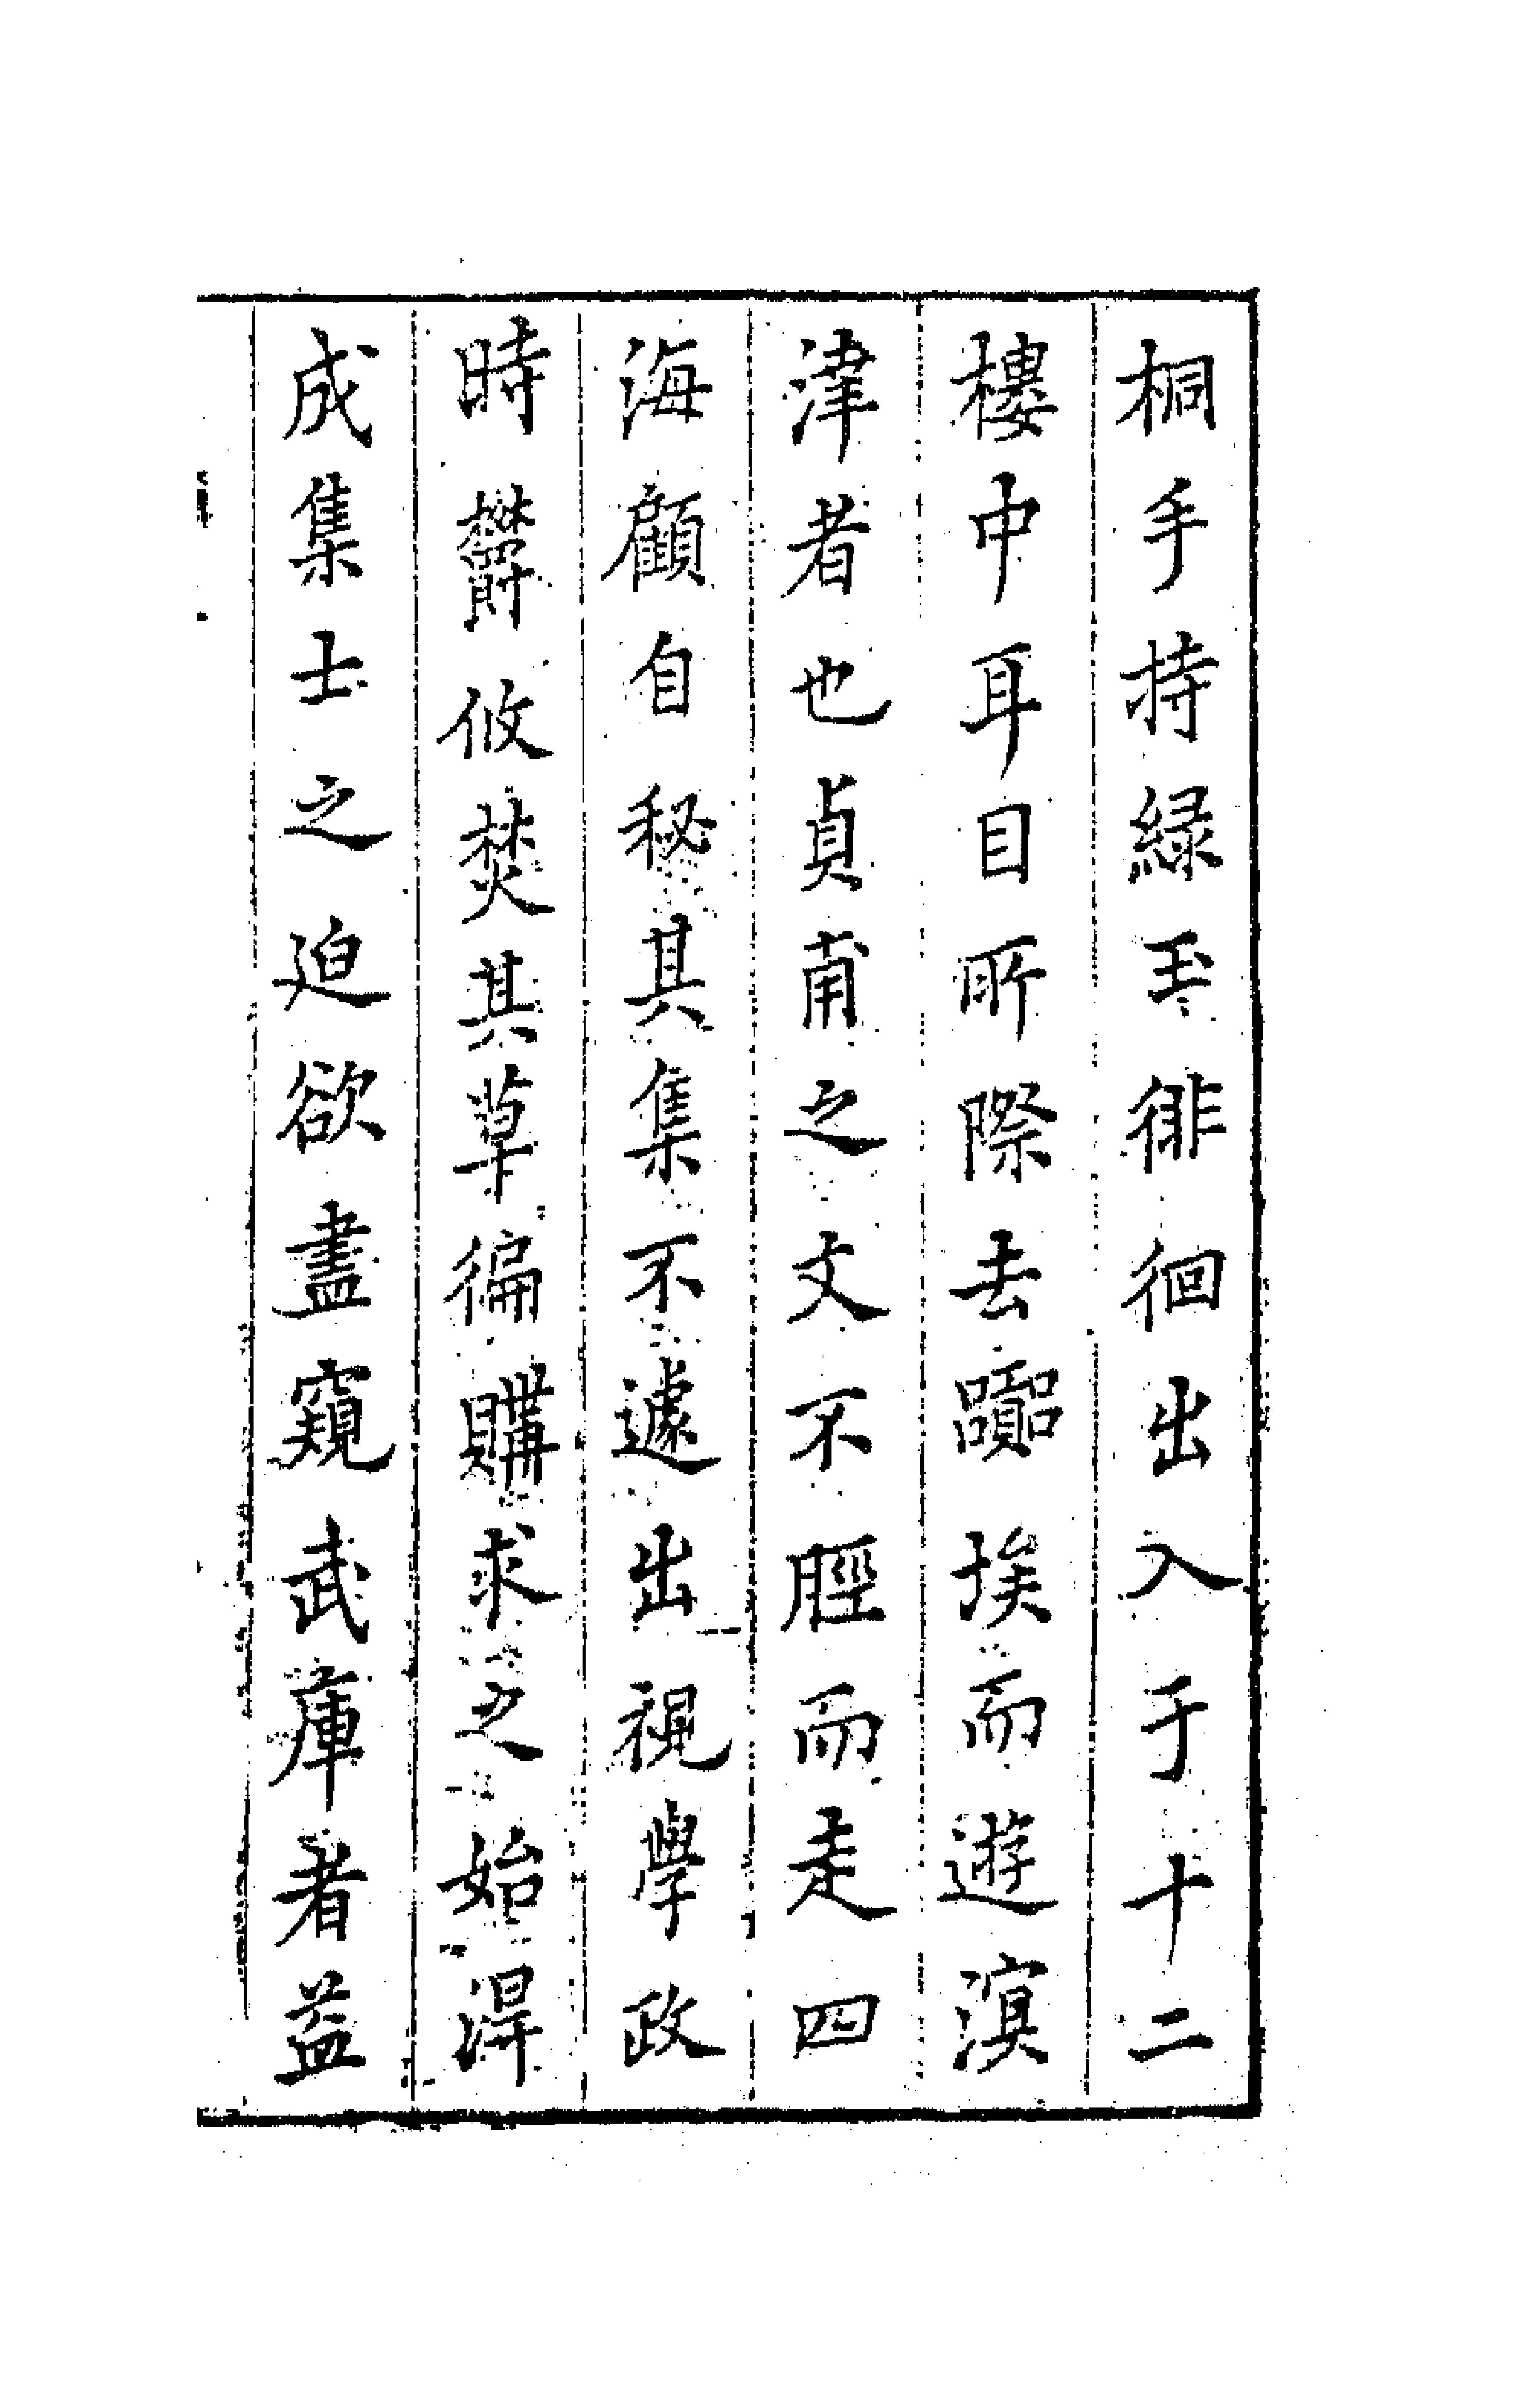 桐手持緑玉徘徊出入于十二
樓中耳目所際去嚻埃而遊溟
津者也貞甫之文不脛而走四
海顧自秘其集不遽出視學政
時欝攸焚其草徧購求之始得
成集士之迫欲盡窺武庫者益